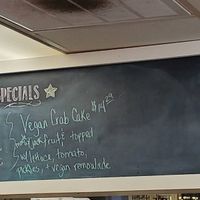 SPECIALS
Vegan Crab Cake $14.29
fruit, topped
w/ lettuce, tomato,
pickles, + vegan remoulade